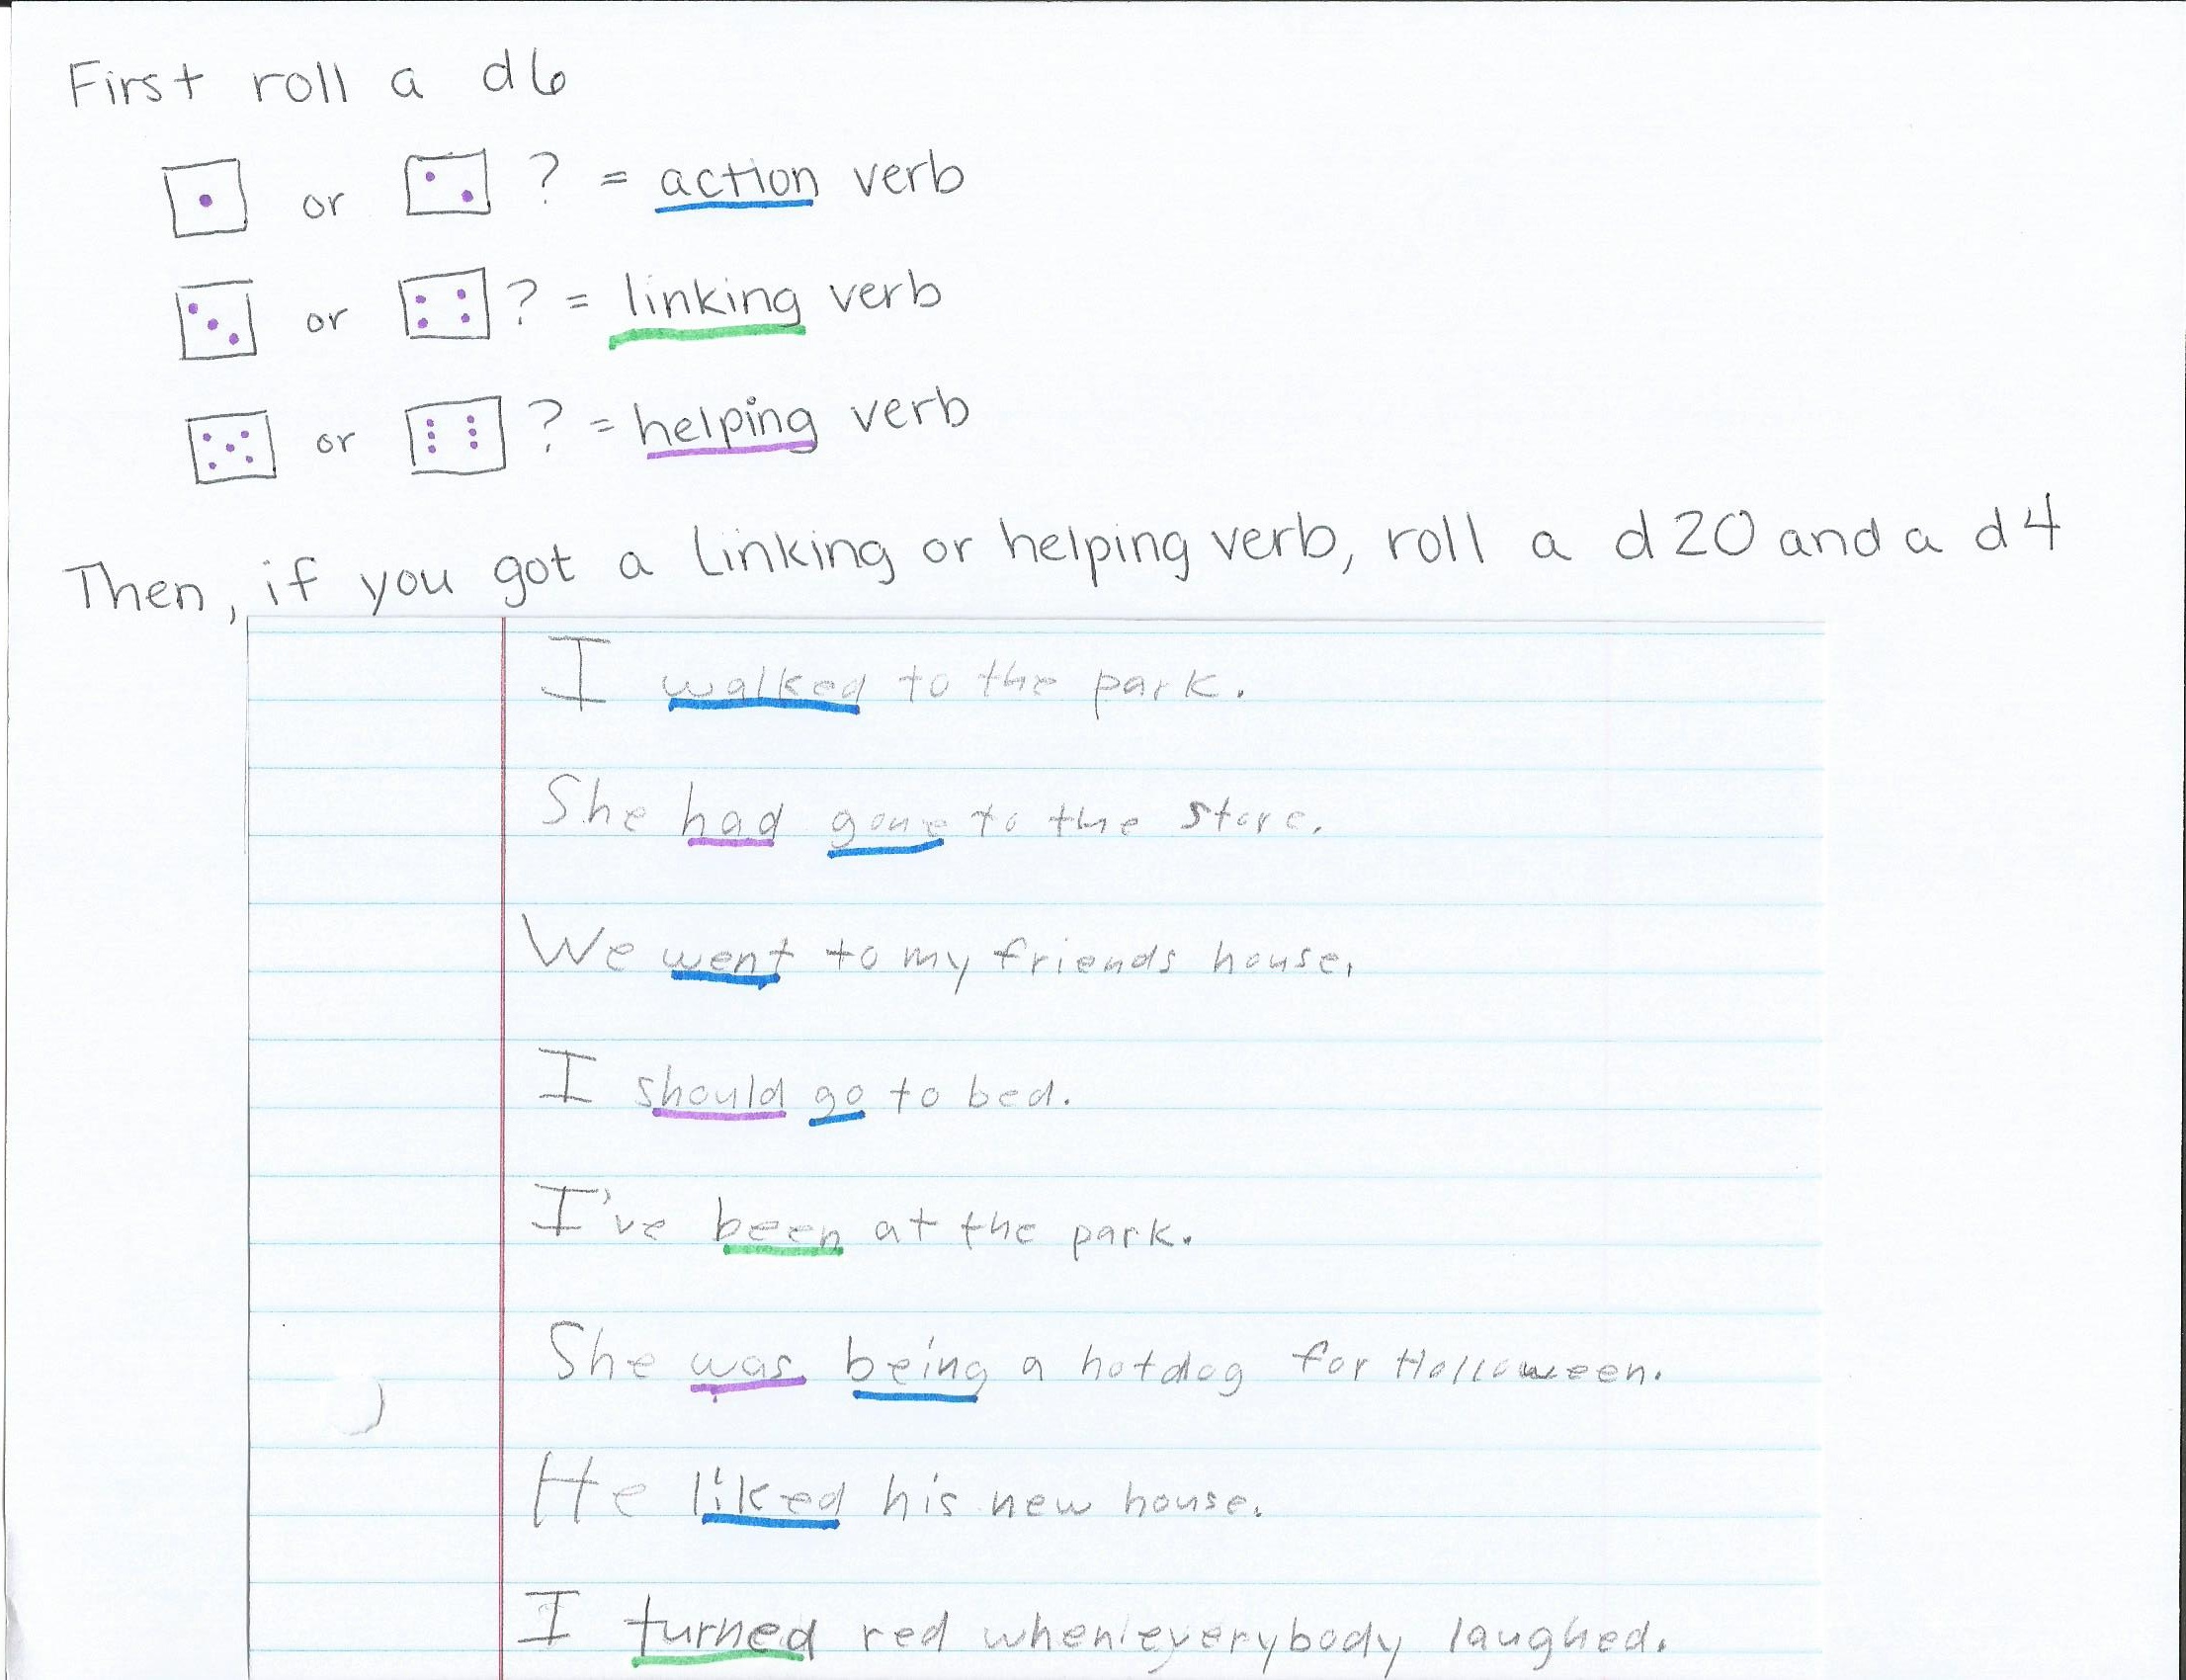 First roll a d6
or ? = action verb
or ? = linking verb
or ? = helping verb
Then, if you got a linking or helping verb, roll a d20 and a d4
I walked to the park.
She had gone to the store.
We went to my friends house.
I should go to bed.
I've been at the park.
She was being a hotdog for Holloween.
He liked his new house.
I turned red when everybody laughed.